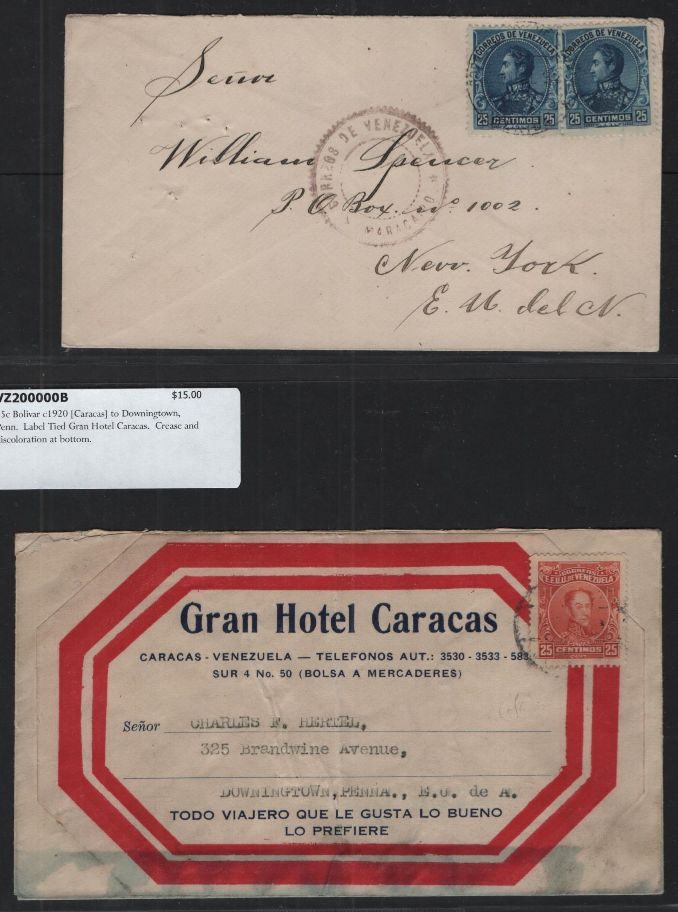 CORREOS DE VENEZUELA CORREOS DE VENEZUELA
25 CENTIMOS 25 25 CENTIMOS 25
Señor
CORREOS DE VENEZUELA
MARACAIBO
William Spencer
P. O. Box. nº 1002.
New. York.
E. U. del N.
VZ200000B $15.00
5c Bolivar c1920 [Caracas] to Downingtown,
Penn. Label Tied Gran Hotel Caracas. Crease and
iscoloration at bottom.
CORREOS
E.E.U.U. DE VENEZUELA
25 CENTIMOS 25
Gran Hotel Caracas
CARACAS - VENEZUELA — TELEFONOS AUT.: 3530 - 3533 - 583
SUR 4 No. 50 (BOLSA A MERCADERES)
Señor CHARLES F. HERTEL,
325 Brandwine Avenue,
DOWNINGTOWN,PENNA., E.U. de A.
TODO VIAJERO QUE LE GUSTA LO BUENO
LO PREFIERE